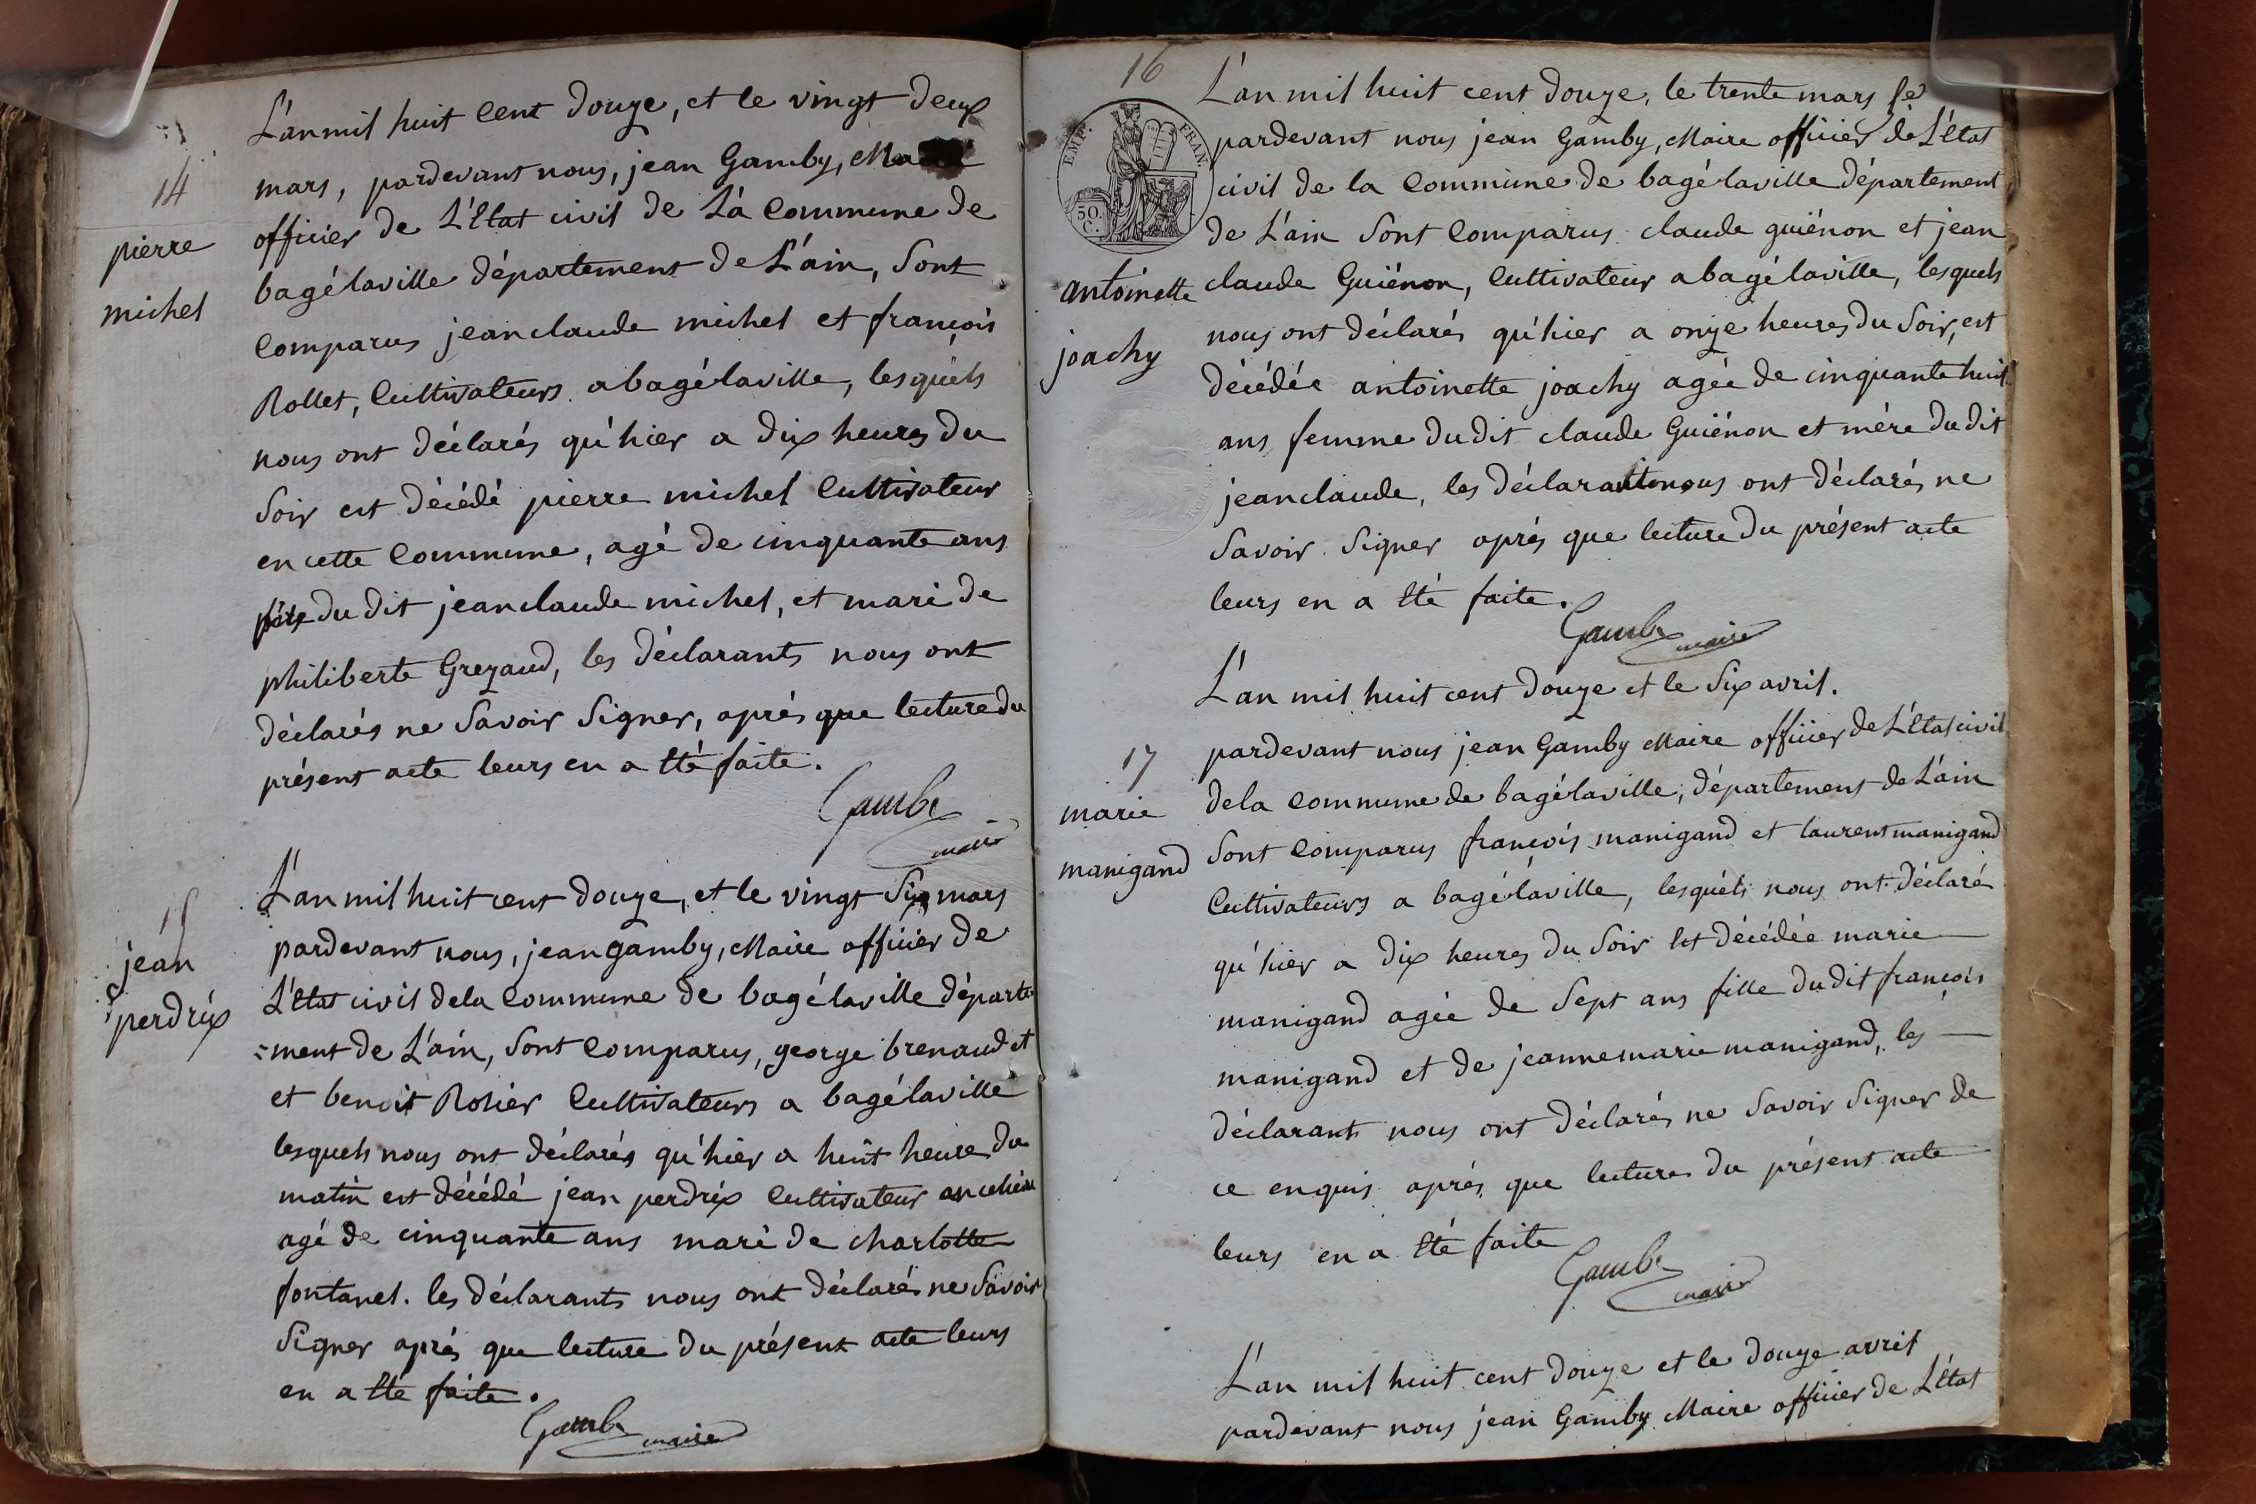 14
pierre
michel
L'an mil huit cent douze, et le vingt deux
mars, pardevant nous, jean Gamby, Maire
officier de L'Etat civil de La Commune de
bagélaville département de L'ain, Sont
Comparus jean claude michel et françois
Rollet, Cultivateurs a bagélaville, lesquels
nous ont déclarés qu'hier a dix heures du
Soir est décédé pierre michel Cultivateur
en cette Commune, agé de cinquante ans
père du dit jean claude michel, et mari de
philiberte Grezaud, les déclarants nous ont
déclarés ne Savoir Signer, après que lecture du
présent acte leurs en a Eté faite.
Gamby
maire
15
jean
perdrix
L'an mil huit cent douze, et le vingt Six mars
pardevant nous, jean gamby, Maire officier de
L'Etat civil dela Commune de bagélaville départe
=ment de L'ain, Sont Comparus, george brenaud et
et benoit Rosier Cultivateurs a bagélaville
lesquels nous ont déclarés qu'hier a huit heure du
matin est décédé jean perdrix Cultivateur
agé de cinquante ans mari de charlotte
fontanel. les déclarants nous ont déclarés ne Savoir
Signer après que lecture du présent acte leurs
en a Eté faite.
Gamby maire
16
EMP. FRAN.
50.
C.
antoinette
joachy
L'an mil huit cent douze, le trente mars
pardevant nous jean Gamby, Maire officier de L'Etat
civil de la Commune de bagélaville département
de L'ain Sont Comparus claude guiénon et jean
claude Guiénon, Cultivateur a bagélaville, lesquels
nous ont déclarés qu'hier a onze heures du Soir, est
décédée antoinette joachy agée de cinquante huit
ans femme du dit claude Guiénon et mère du dit
jean claude, les déclarants nous ont déclarés ne
Savoir Signer après que lecture du présent acte
leurs en a Eté faite.
Gamby maire
17
marie
manigand
L'an mil huit cent douze et le Six avril.
pardevant nous jean Gamby Maire officier de L'Etat civil
dela Commune de bagélaville, département de L'ain
Sont Comparus françois manigand et laurent manigand
Cultivateurs a bagélaville, lesquels nous ont déclaré
qu'hier a dix heures du Soir Est décédée marie
manigand agée de Sept ans fille du dit françois
manigand et de jeanne marie manigand, les
déclarants nous ont déclarés ne Savoir Signer de
ce enquis après que lecture du présent acte
leurs en a Eté faite
Gamby
maire
L'an mil huit cent douze et le douze avril
pardevant nous jean Gamby Maire officier de L'Etat